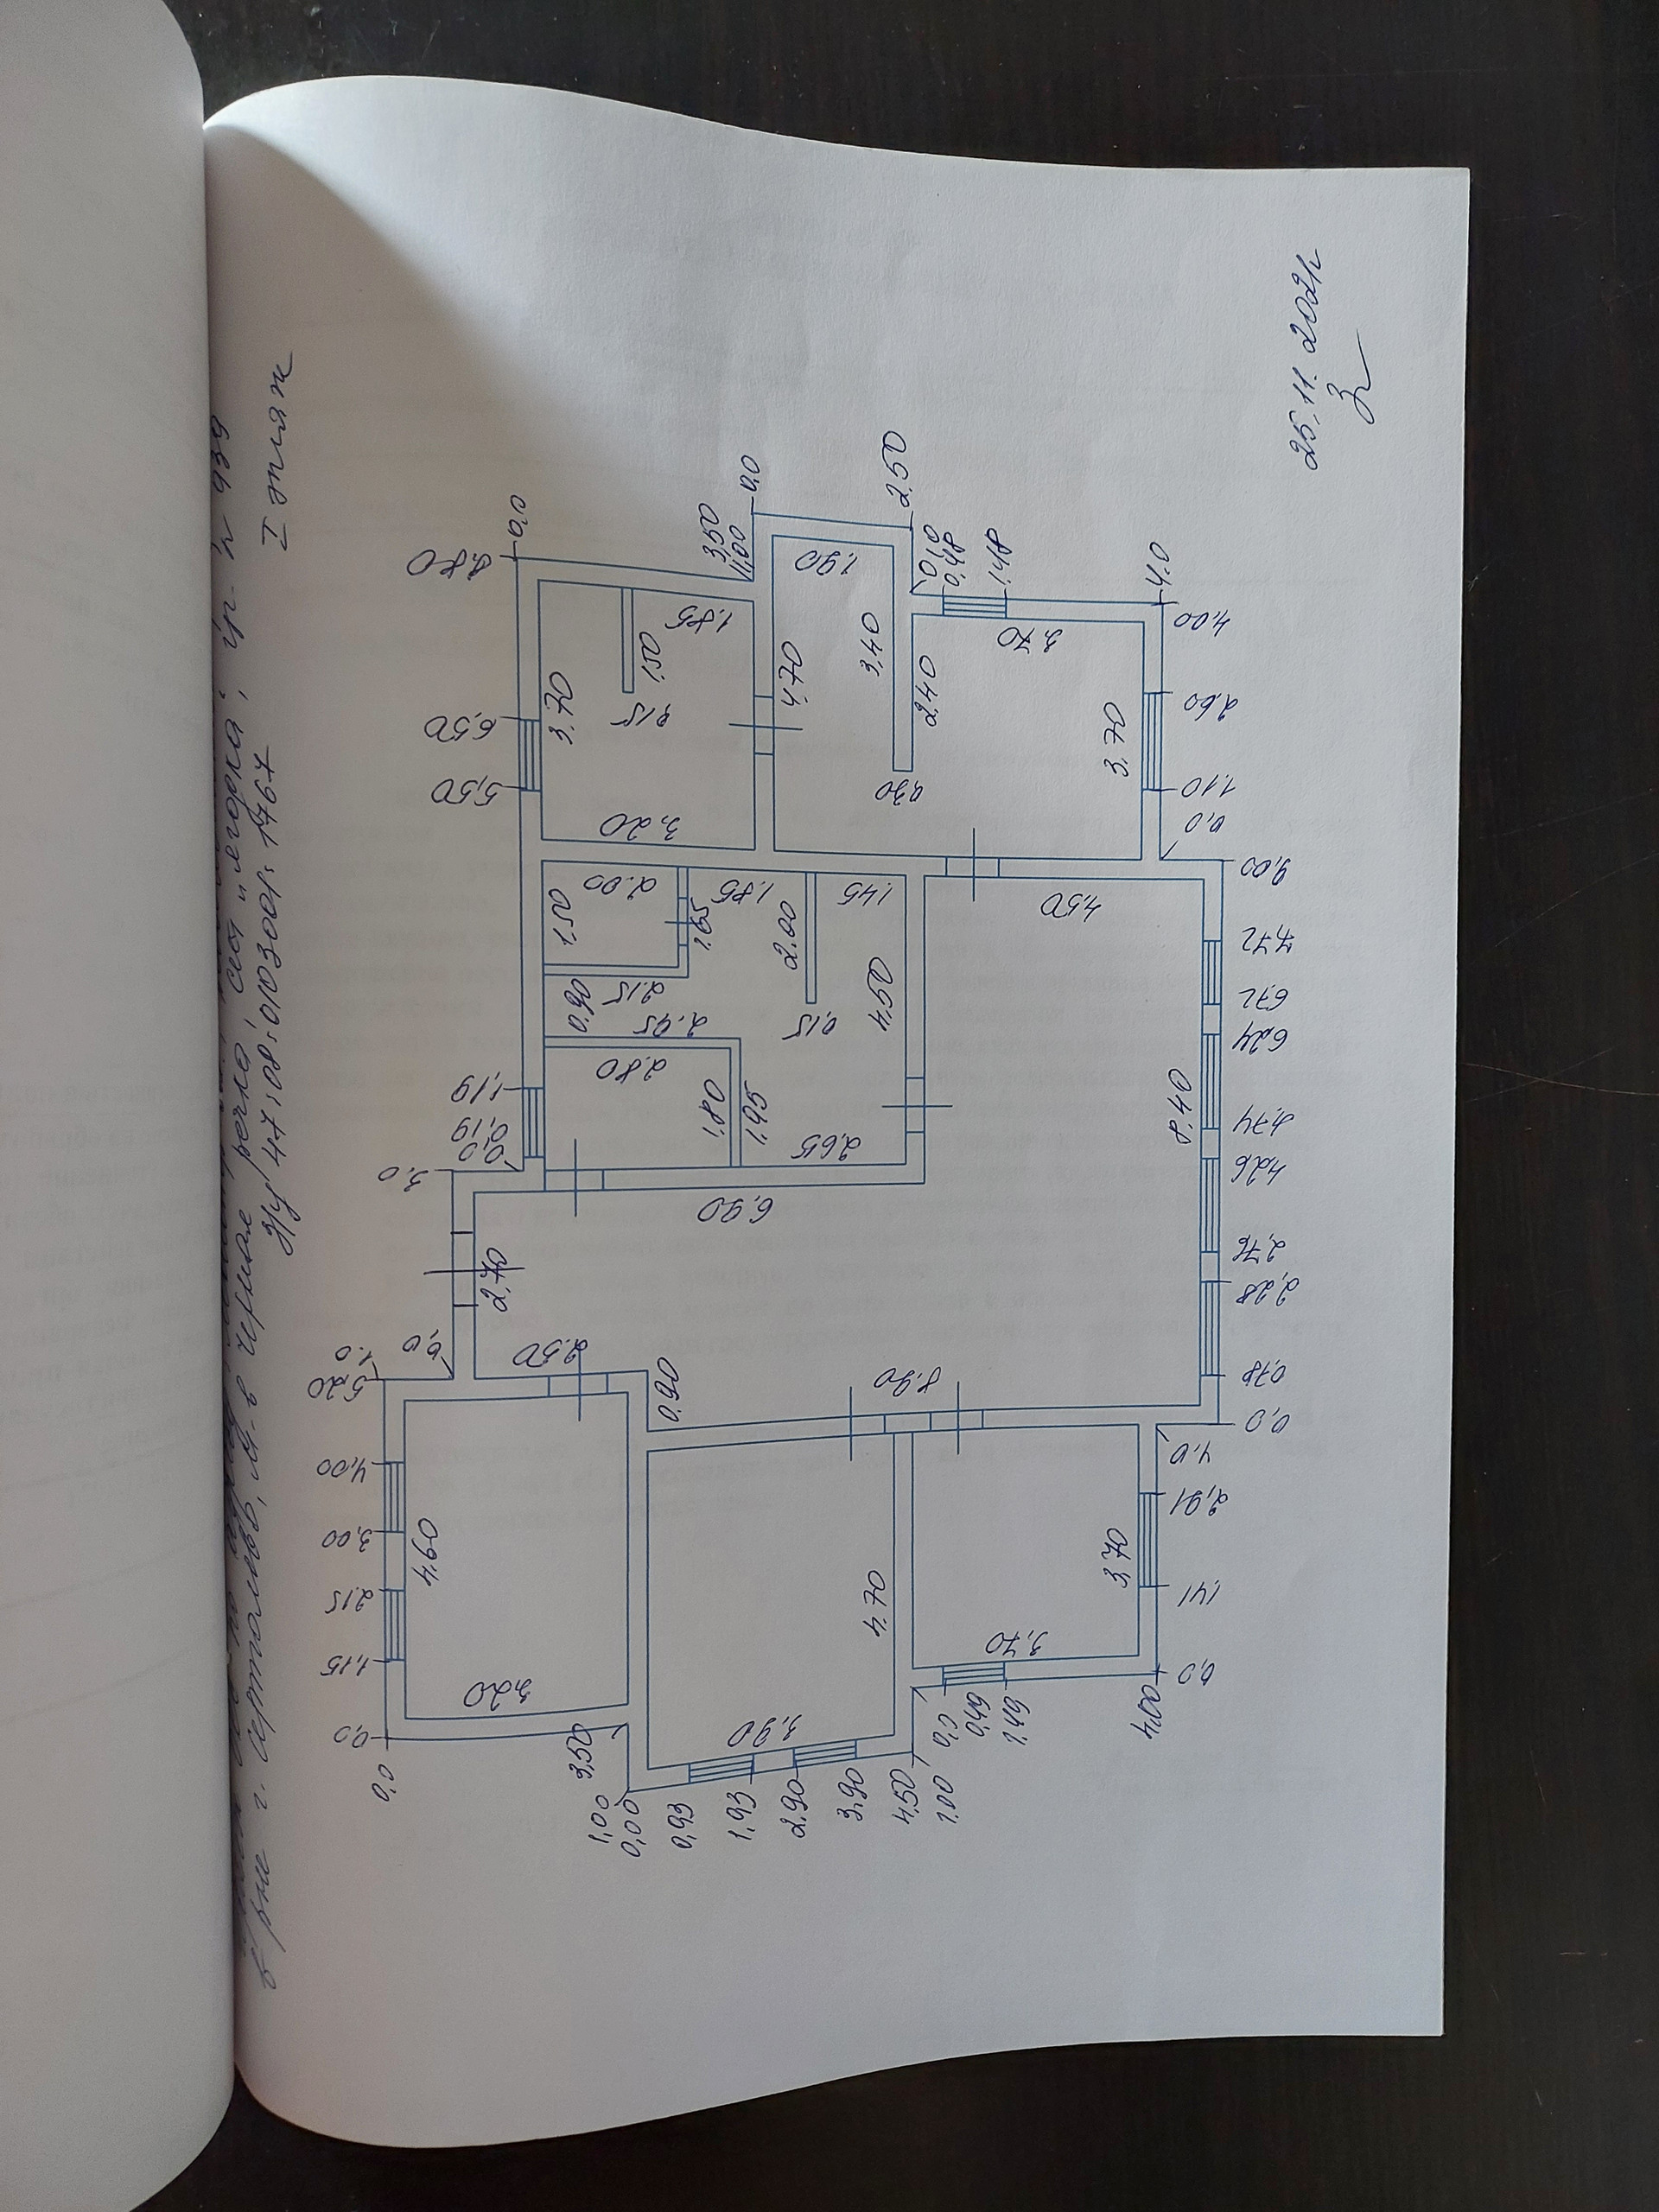 в р-не г. Сертолово, м-в Черная речка, снт "Негорка", уч. № 939
З/у 47:08:0103001:1767
I этаж
0,0
8.80
6,50
5,50
1,19
0,19
0,0
3.0
0,0
1.0
5.20
4,00
3,00
2,15
1,15
0,0
0,0
3,50
1,00
0,00
0,93
1,93
2,90
3,90
4,50
1.00
0,0
0,49
1,49
4,00
0,0
1,41
2,91
4.0
0,0
0,78
2,28
2,76
4,26
4,74
6,24
6,72
7,72
9,00
0,0
1.10
2,60
4,00
4.0
1.48
0,48
0,0
2.50
0,0
1,00
3,50
3.70
1.85
1.50
0,15
3,20
4.70
1.90
3,40
2,40
0,30
3.70
3.70
1.50
2.00
1.65
2,15
0.90
2.95
2.80
1.80
1.95
1.85
2.00
0,15
1.45
4.50
2,65
6,90
2.70
2.50
0.90
4.50
8,40
8.90
4.60
3,20
4.70
3.90
3,70
3,70
25.11.2021г